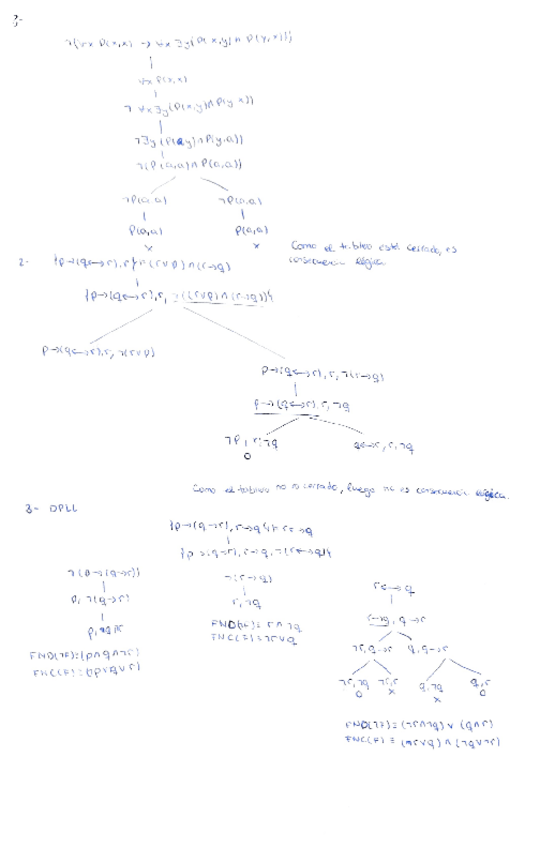 2-
¬(∀x P(x,x) → ∀x ∃y (P(x,y) ∧ P(y,x)))
∀x P(x,x)
¬ ∀x ∃y (P(x,y) ∧ P(y,x))
¬∃y (P(a,y) ∧ P(y,a))
¬(P(a,a) ∧ P(a,a))
¬P(a,a) ¬P(a,a)
P(a,a) P(a,a)
x x
Como el tableo está cerrado, es
consecuencia lógica.
2- {p→(q↔r), r} ⊨ (r∨p) ∧ (r→q)
{p→(q↔r), r, ¬((r∨p) ∧ (r→q))}
p→(q↔r), r, ¬(r∨p)
p→(q↔r), r, ¬(r→q)
p→(q↔r), r, ¬q
¬p, r, ¬q q↔r, r, ¬q
O
Como el tableo no es cerrado, luego no es consecuencia lógica.
3- DPLL
{p→(q→r), r→q} ⊨ r↔q
{p→(q→r), r→q, ¬(r↔q)}
¬(p→(q→r)) ¬(r→q) r↔q
p, ¬(q→r) r, ¬q r→q, q→r
p, q, ¬r FND(¬F)≡ r∧¬q ¬r, q→r q, q→r
FND(¬F)≡(p∧q∧¬r) FNC(F)≡¬r∨q
FNC(F)≡(¬p∨¬q∨r) ¬r, ¬q ¬r, r q, ¬q q, r
O x x O
FND(¬F)≡ (¬r∧¬q) ∨ (q∧r)
FNC(F)≡ (r∨q) ∧ (¬q∨¬r)